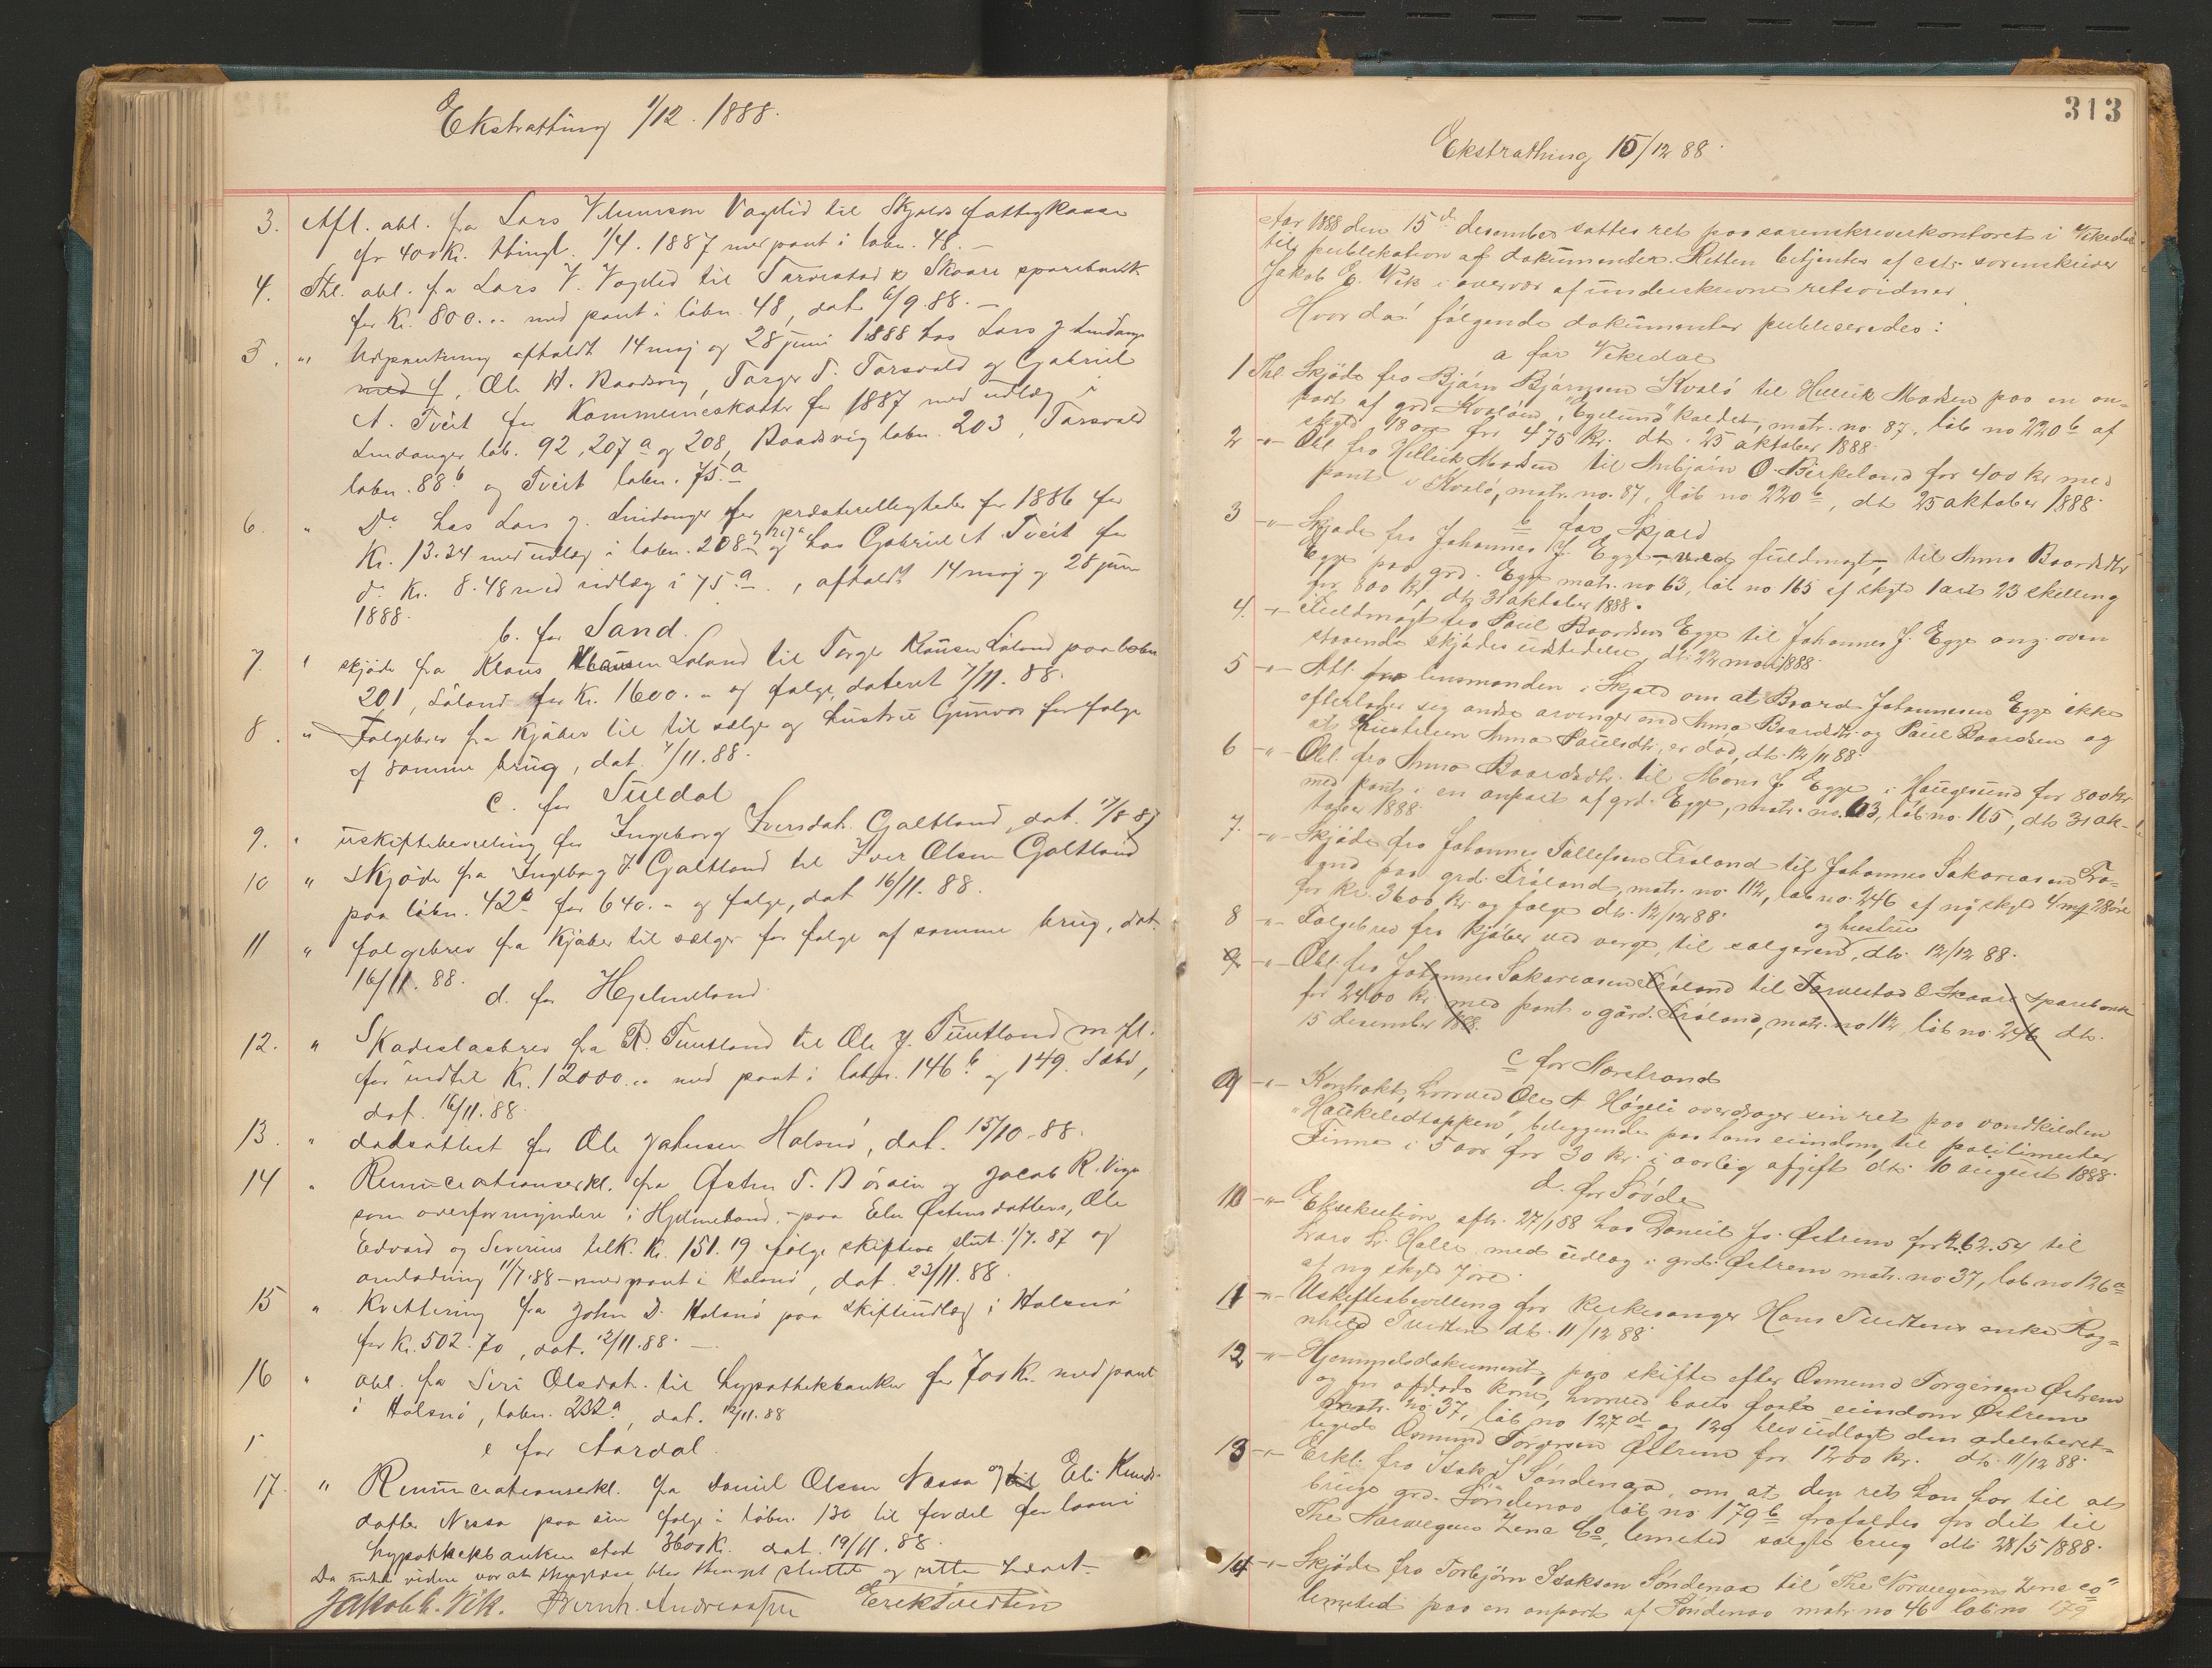 Ekstrathing 1/12. 1888.
3. Afl. obl. fra Lars Vagslid til Skjolds fattigkasse
for 400 Kr. thingl. 1/4. 1887 med pant i løbn. 48. –
4. Thl. obl. fra Lars V. Vagslid til Torvestad & Skaare sparebank
for Kr. 800... med pant i løbn. 48, dat. 6/9.88. –
5. " Udpantning afholdt 14 maj og 28 juni 1888 hos Lars J. Lindanger
med f, Ole H. Raadsvig, Torger T. Torsvald og Gabriel
A. Tveit for Kommuneskatter for 1887 med udlæg i
Lindanger løb. 92, 207 a og 208, Raadsvig løbn. 203, Torsvald
løbn. 88 b og Tveit løbn. 75. a
6. " Do hos Lars J. Lindanger for præsterettigheder for 1886 for
Kr. 13.34 med udlæg i løbn. 208 og 207 a og hos Gabriel A Tveit for
do Kr. 8.48 med udlæg i 75 a, afholdt 14 maj og 28 juni
1888.
b. for Sand.
7. " skjøde fra Klaus Klausen Løland til Torger Klausen Løland paa løbn
201, Løland for Kr. 1600. " og folge, dateret 7/11. 88.
8. " Folgebrev fra Kjøber til til sælger og hustru Gunvor for folge
af samme brug, dat. 7/11. 88.
C. for Suldal
9. " uskiftebevilling for Ingeborg Iversdat. Galtland, dat. 17/8 87
10 " skjøde fra Ingeborg I. Galtland til Iver Olsen Galtland
paa løbn. 42 b for 640. " og folge, dat 16/11. 88.
11 " folgebrev fra Kjøber til sælger for folge af samme brug, dat.
16/11. 88.
d. for Hjelmeland.
12. " Skadesløsbrev fra R. Tuntland til Ole J. Tuntland m fl.
for indtil Kr. 12000... med pant i løbn. 146 b og 149. Sæbø,
dat. 16/11. 88
13. " dødsattest for Ole Halsnø, dat. 15/10 - 88.
14 " Renunciationserkl. fra Østen T. og Jacob R. Viga
som overformyndere i Hjelmeland, – paa Østensdatters, Ole
Edvard og Severins tilk. Kr. 151.19 følge skiftena slut. 1/7. 87 og
omladning 11/7.88 – med pant i Halsnø, dat. 23/11. 88.
15 " Kvittering fra John D. Halsnø paa skifteudlæg i Halsnø
for Kr. 502.70, dat. 12/11. 88. –
16 " obl. fra Siri Olsdat. til hypothekbanken for 700 Kr. med pant
i Halsnø, løbn. 232 a, dat. 12/11. 88
e for Aardal.
17. " Renunciationserkl. fra Daniel Olsen Nessa og til Eli Knuds-
datter Nessa paa sin folge i løbn. 130 til fordel for laan i
hypothekbanken stort 3600 Kr. dat. 19/11. 88.
Da intet videre var at thinglæse blev thinget sluttet og retten hævet –
Jakob E. Vik. Bernh. Andreassen Erik Tvedten
313
Ekstrathing 15/12 88.
Aar 1888 den 15de desember sattes ret paa sorenskriverkontoret i Vikedal
til publikation af dokumenter. Retten betjentes af cst. sorenskriver
Jakob E. Vik i overvær af underskrevne retsvidner.
Hvor da! følgende dokumenter publiceredes:
a for Vikedal
1 Thl Skjøde fra Bjørn Bjørnsen Kvalø til Hellik Madsen paa en an-
part af grd Kvaløen, "Egelund" kaldet, matr. no. 87. løb no 220 b af
skyld 18 øre for 475 Kr. dt. 25 oktober 1888.
2 -"- Obl fra Hellik Madsen til Anbjørn O. Birkeland for 400 kr med
pant i Kvalø, matr. no. 87, løb no 220 b, dt. 25 oktober 1888.
b for Skjold
3 -"- Skjøde fra Johannes J. Egge – ved fuldmagt –, til Anna Baardsdtr
Egge paa grd. Egge matr. no 63, løb no 165 af skyld 1 ort 23 skilling
for 800 kr, dt. 31 oktober 1888.
4. -"- Fuldmagt fra Paul Baardsen Egge til Johannes J. Egge ang. oven
staaende skjødes udstedelse, dt. 22 mai 1888.
5 -"- Att. fra lensmanden i Skjold om at Baard Johannesen Egge ikke
efterlader sig andre arvinger end Anna Baardsdtr. og Paul Baardsen og
at hustruen Anna Paulsdtr, er død, dt. 12/11 88.
6 -"- Obl. fra Anna Baardsdtr. til Mons J. Egge i Haugesund for 800 kr
med pant i en anpart af grd. Egge, matr. no. 63, løb no. 165, dt. 31 ok-
tober 1888.
7. -"- Skjøde fra Johannes Tollefsen Frøland til Johannes Sakariasen Frø-
land paa grd. Frøland, matr. no. 112, løb no. 246 af ny skyld 4 mk 28 øre
for kr. 3600 kr. og folge dt. 12/12 88.
8 -"- Folgebrev fra kjøber ved verge, til sælgeren og hustru, dt. 12/12 88.
9 -"- Obl. fra Johannes Sakariasen Frøland til Torvestad & Skaare sparebank
for 2400 kr med pant i gård. Frøland, matr. no 112, løb no. 246 dt.
15 desember 1888.
c for Nærstrand
9 -"- Kontrakt, hvorved Ole A Høgeli overdrager sin ret paa vandkilden
"Haukeledtappen", beliggende paa hans eiendom, til politimester
Finne i 5 aar for 30 kr. i aarlig afgift dt. 10 august 1888.
d. for Søvde
10 -"- Eksekution, afh. 27/1 88 hos Daniel Js. Østrem for kr. 62.54 til
Lars L. Halle, med udlæg i grd. Østrem matr. no. 37, løb no 126 a
af ny skyld 7 øre.
11 -"- Uskiftesbevilling for kirkesanger Hans Tvedtens enke Rag-
nhild Tvedten dt. 11/12 88
12 -"- Hjemmelsdokument paa skifte efter Osmund Torgersen Østrem
og før afdøde kone, hvorved boets faste eiendom Østrem
matr. no. 37, løb no 127 d og 129 blev udlagt den odelsberet-
tigede Osmund Torgersen Østrem for 1200 kr. dt. 11/12 88.
13 -"- Erkl. fra Isak I Søndenaa, om at den ret han har til at
bruge grd. Søndenaa løb no 179 b frafaldes for det til
The Norwegian Zenc Co, lemeted solgte brug dt. 28/5 1888.
14 -"- Skjøde fra Torbjørn Isaksen Søndenaa til "The Norwegians Zenc co"
lemeted paa en anpart af Søndenaa matr. no 46 løb no 179